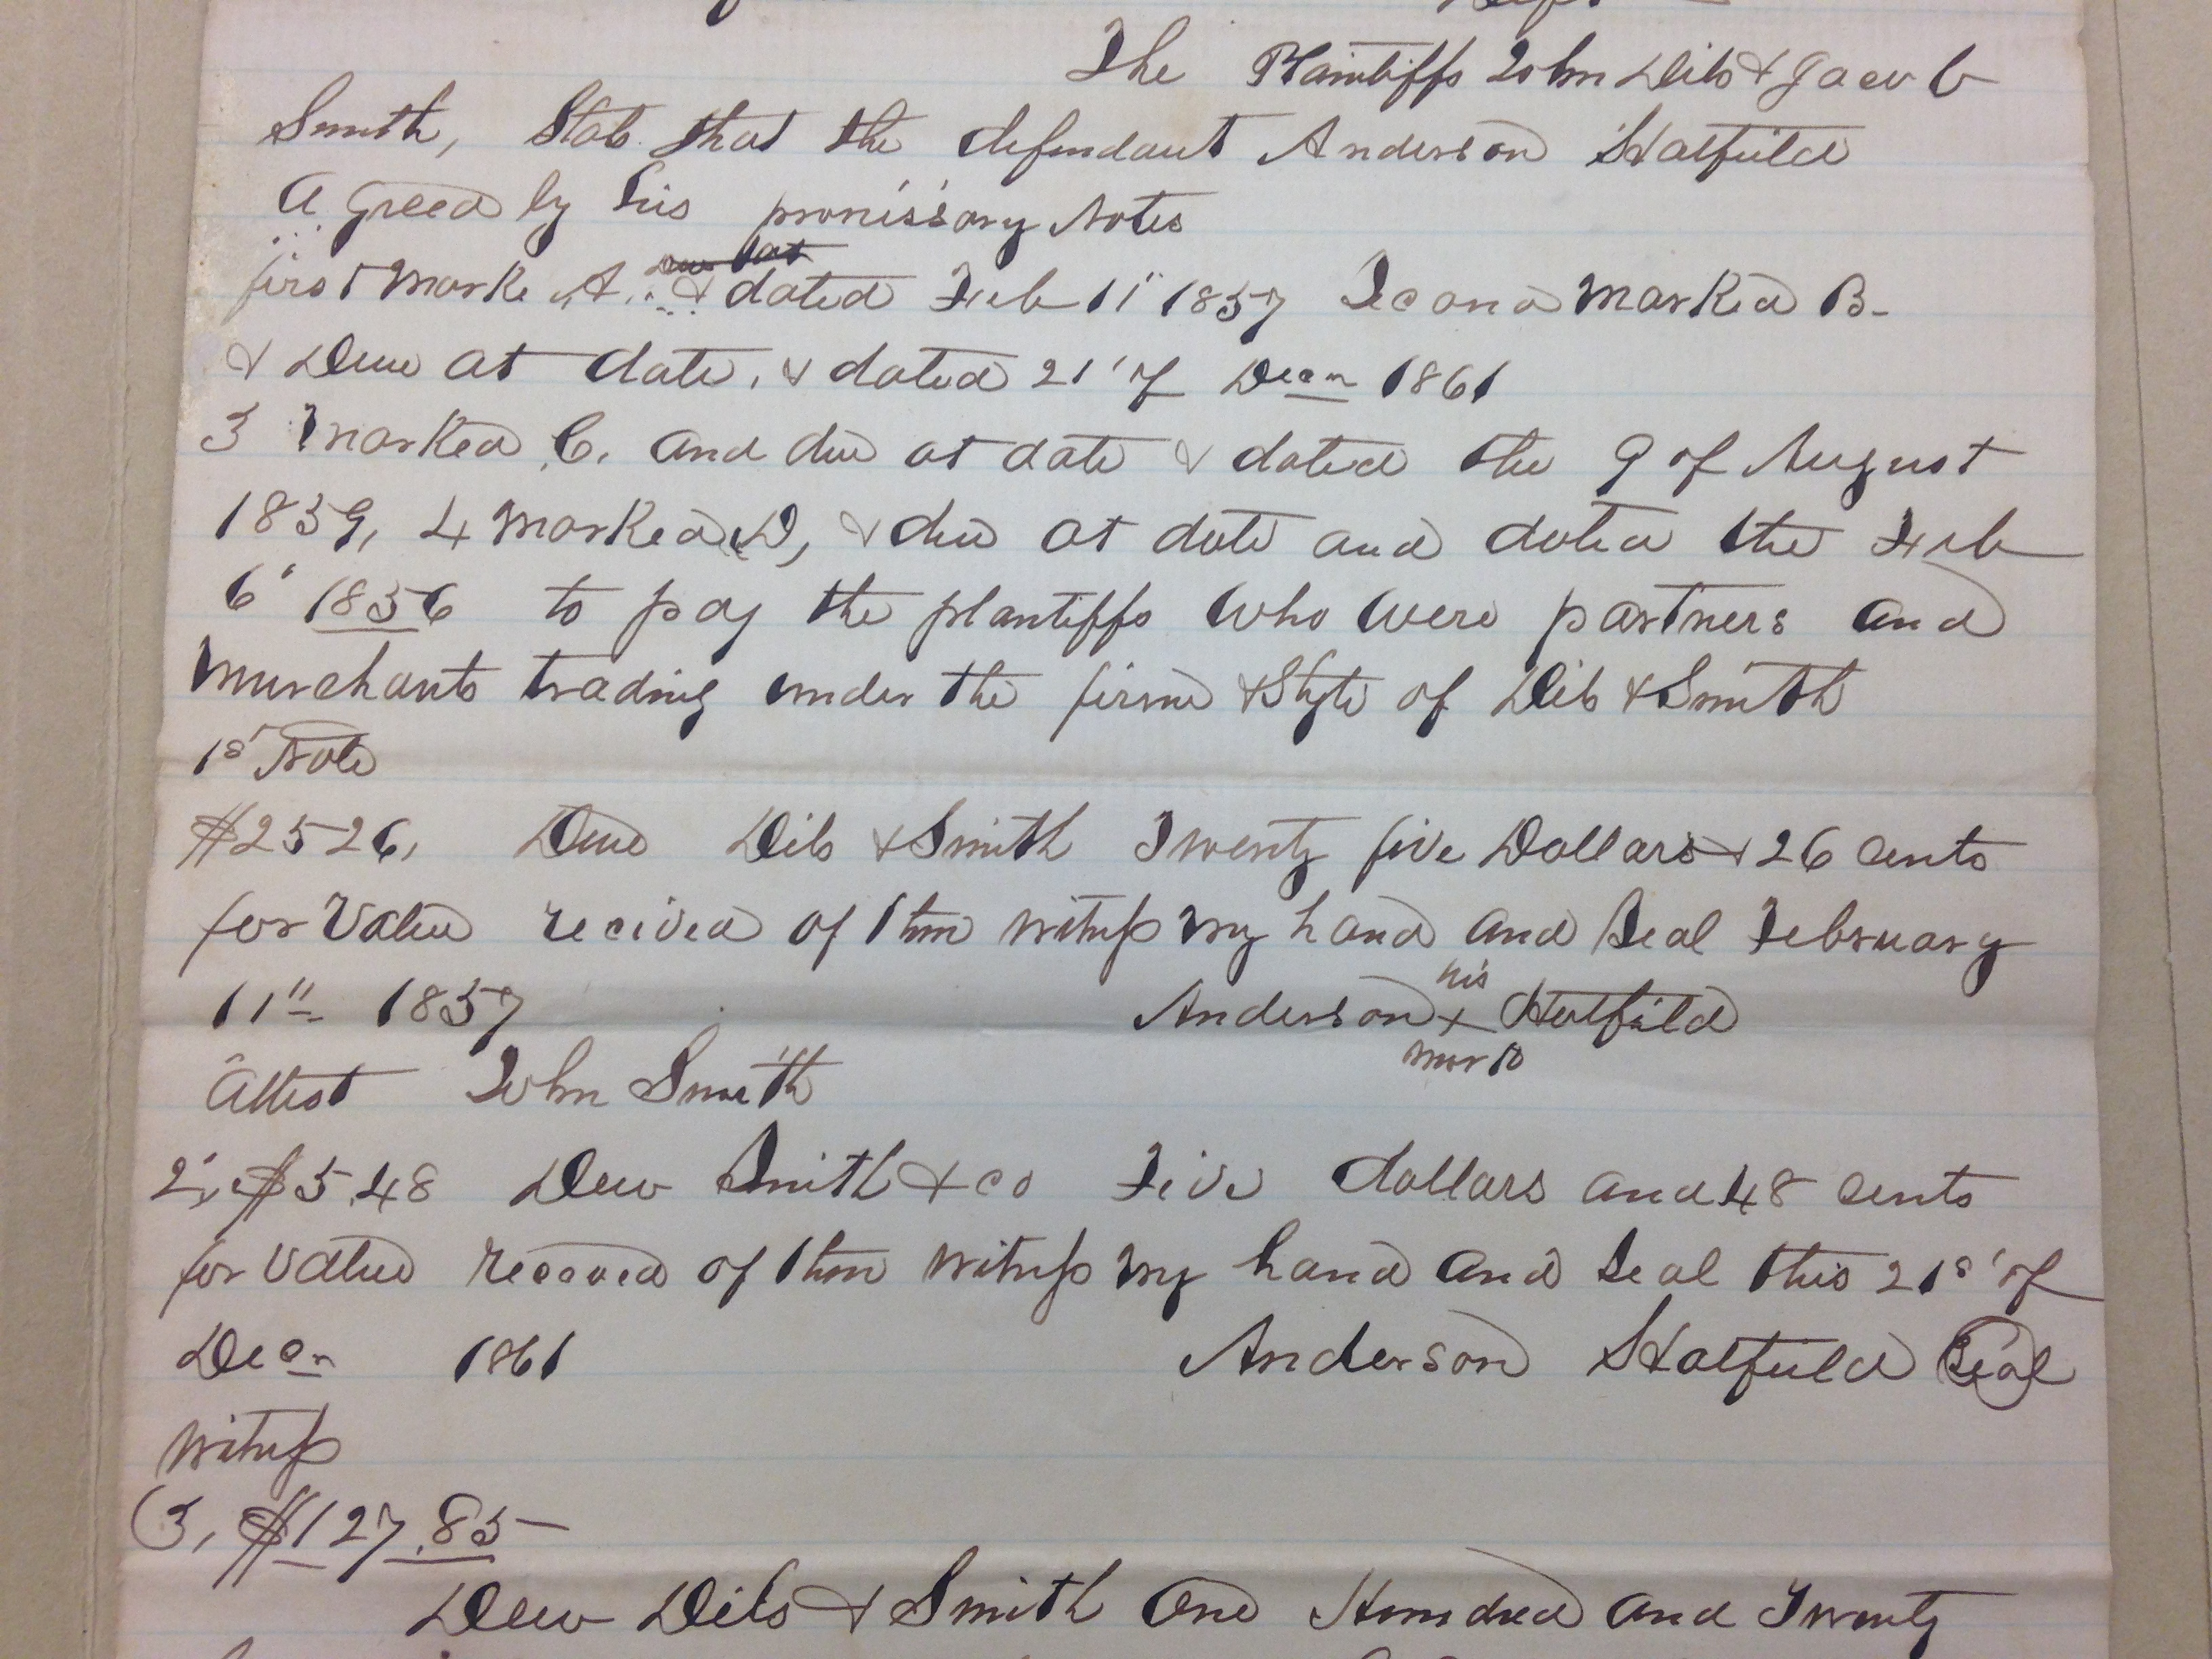 The Plaintiffs John Dils & Jacob
Smith, State that the defendant Anderson Hatfield
a greed by his promissory Notes
first Marke "A" & dated Feb 11" 1857 Second Marked B-
& Due at date, & dated 21' of Decm 1861
3 Marked C. and due at date & dated the 9 of August
1859, 4 Marked D, & due at date and dated the Feb
6' 1856 to pay the plantiffs who were partners and
Murchants trading under the firme & Style of Dils & Smith
1st Note
$25 26, Due Dils & Smith Twenty five Dollars & 26 cents
for Value recived of them witness my hand and Seal February
11" 1857 Anderson his x mark Hatfield
Attest John Smith
2', $5.48 Due Smith & co Five dollars and 48 cents
for Value received of them witness my hand and Seal this 21st of
Decm 1861 Anderson Hatfield Seal
witness
(3, $127.85
Due Dils & Smith One Hundred and Twenty